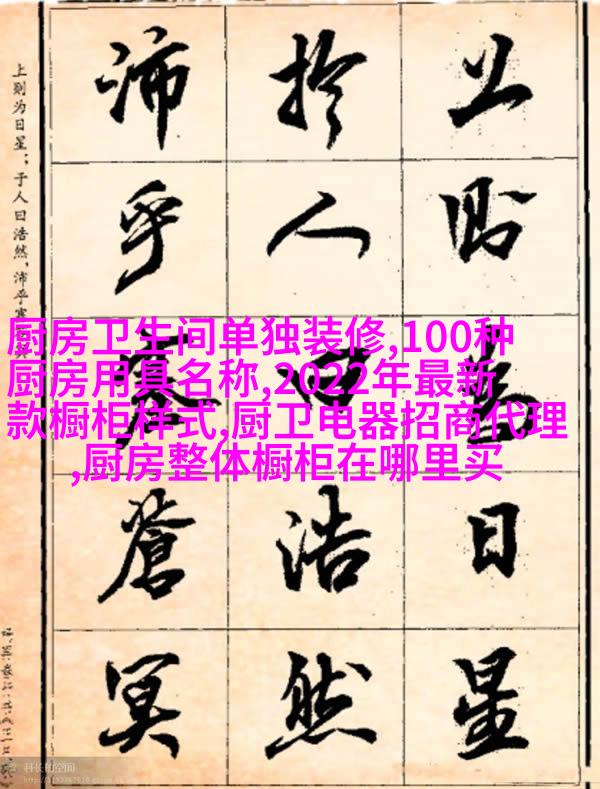 上则为日星
於人曰浩然
沛乎塞蒼冥
上则为日星；于人曰浩然，沛乎塞
厨房卫生间单独装修,100种
厨房用具名称,2022年最新
款橱柜样式,厨卫电器招商代理
,厨房整体橱柜在哪里买
科长的空间